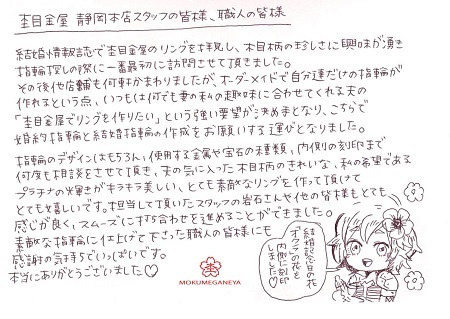 杢目金屋 静岡本店スタッフの皆様、職人の皆様
結婚情報誌で杢目金屋のリングを拝見し、木目柄の珍しさに興味が湧き
指輪探しの際に一番最初に訪問させて頂きました。
その後他店舗も何軒かまわりましたが、オーダーメイドで自分達だけの指輪が
作れるという点、いつもは何でも妻の私の趣味に合わせてくれる夫の
「杢目金屋でリングを作りたい」という強い要望が決め手となり、こちらで
婚約指輪と結婚指輪の作成をお願いする運びとなりました。
指輪のデザインはもちろん、使用する金属や宝石の種類、内側の刻印まで
何度も相談をさせて頂き、夫の気に入った木目柄のきれいな、私の希望である
プラチナの輝きがキラキラ美しい、とても素敵なリングを作って頂けて
とても嬉しいです。担当して頂いたスタッフの岩石さんや他の皆様もとても
感じが良く、スムーズに打ち合わせを進めることができました。
素敵な指輪に仕上げて下さった職人の皆様にも
感謝の気持ちでいっぱいです。
本当にありがとうございました♡
結婚記念日の花
「オクラ」の花を
内側に刻印
しました♡
MOKUMEGANEYA